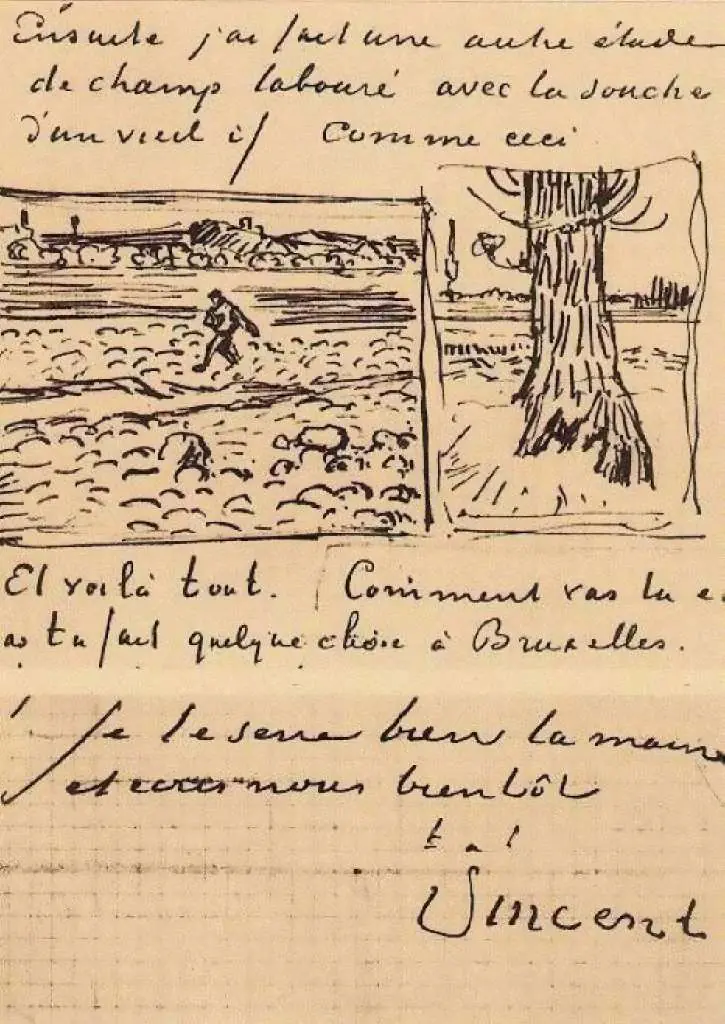 Ensuite j'ai fait une autre étude
de champ labouré avec la souche
d'un vieil if Comme ceci
Et voilà tout. Comment vas tu e
as tu fait quelque chose à Bruxelles.
Je te serre bien la main
et ecris nous bientôt
t. à t.
Vincent